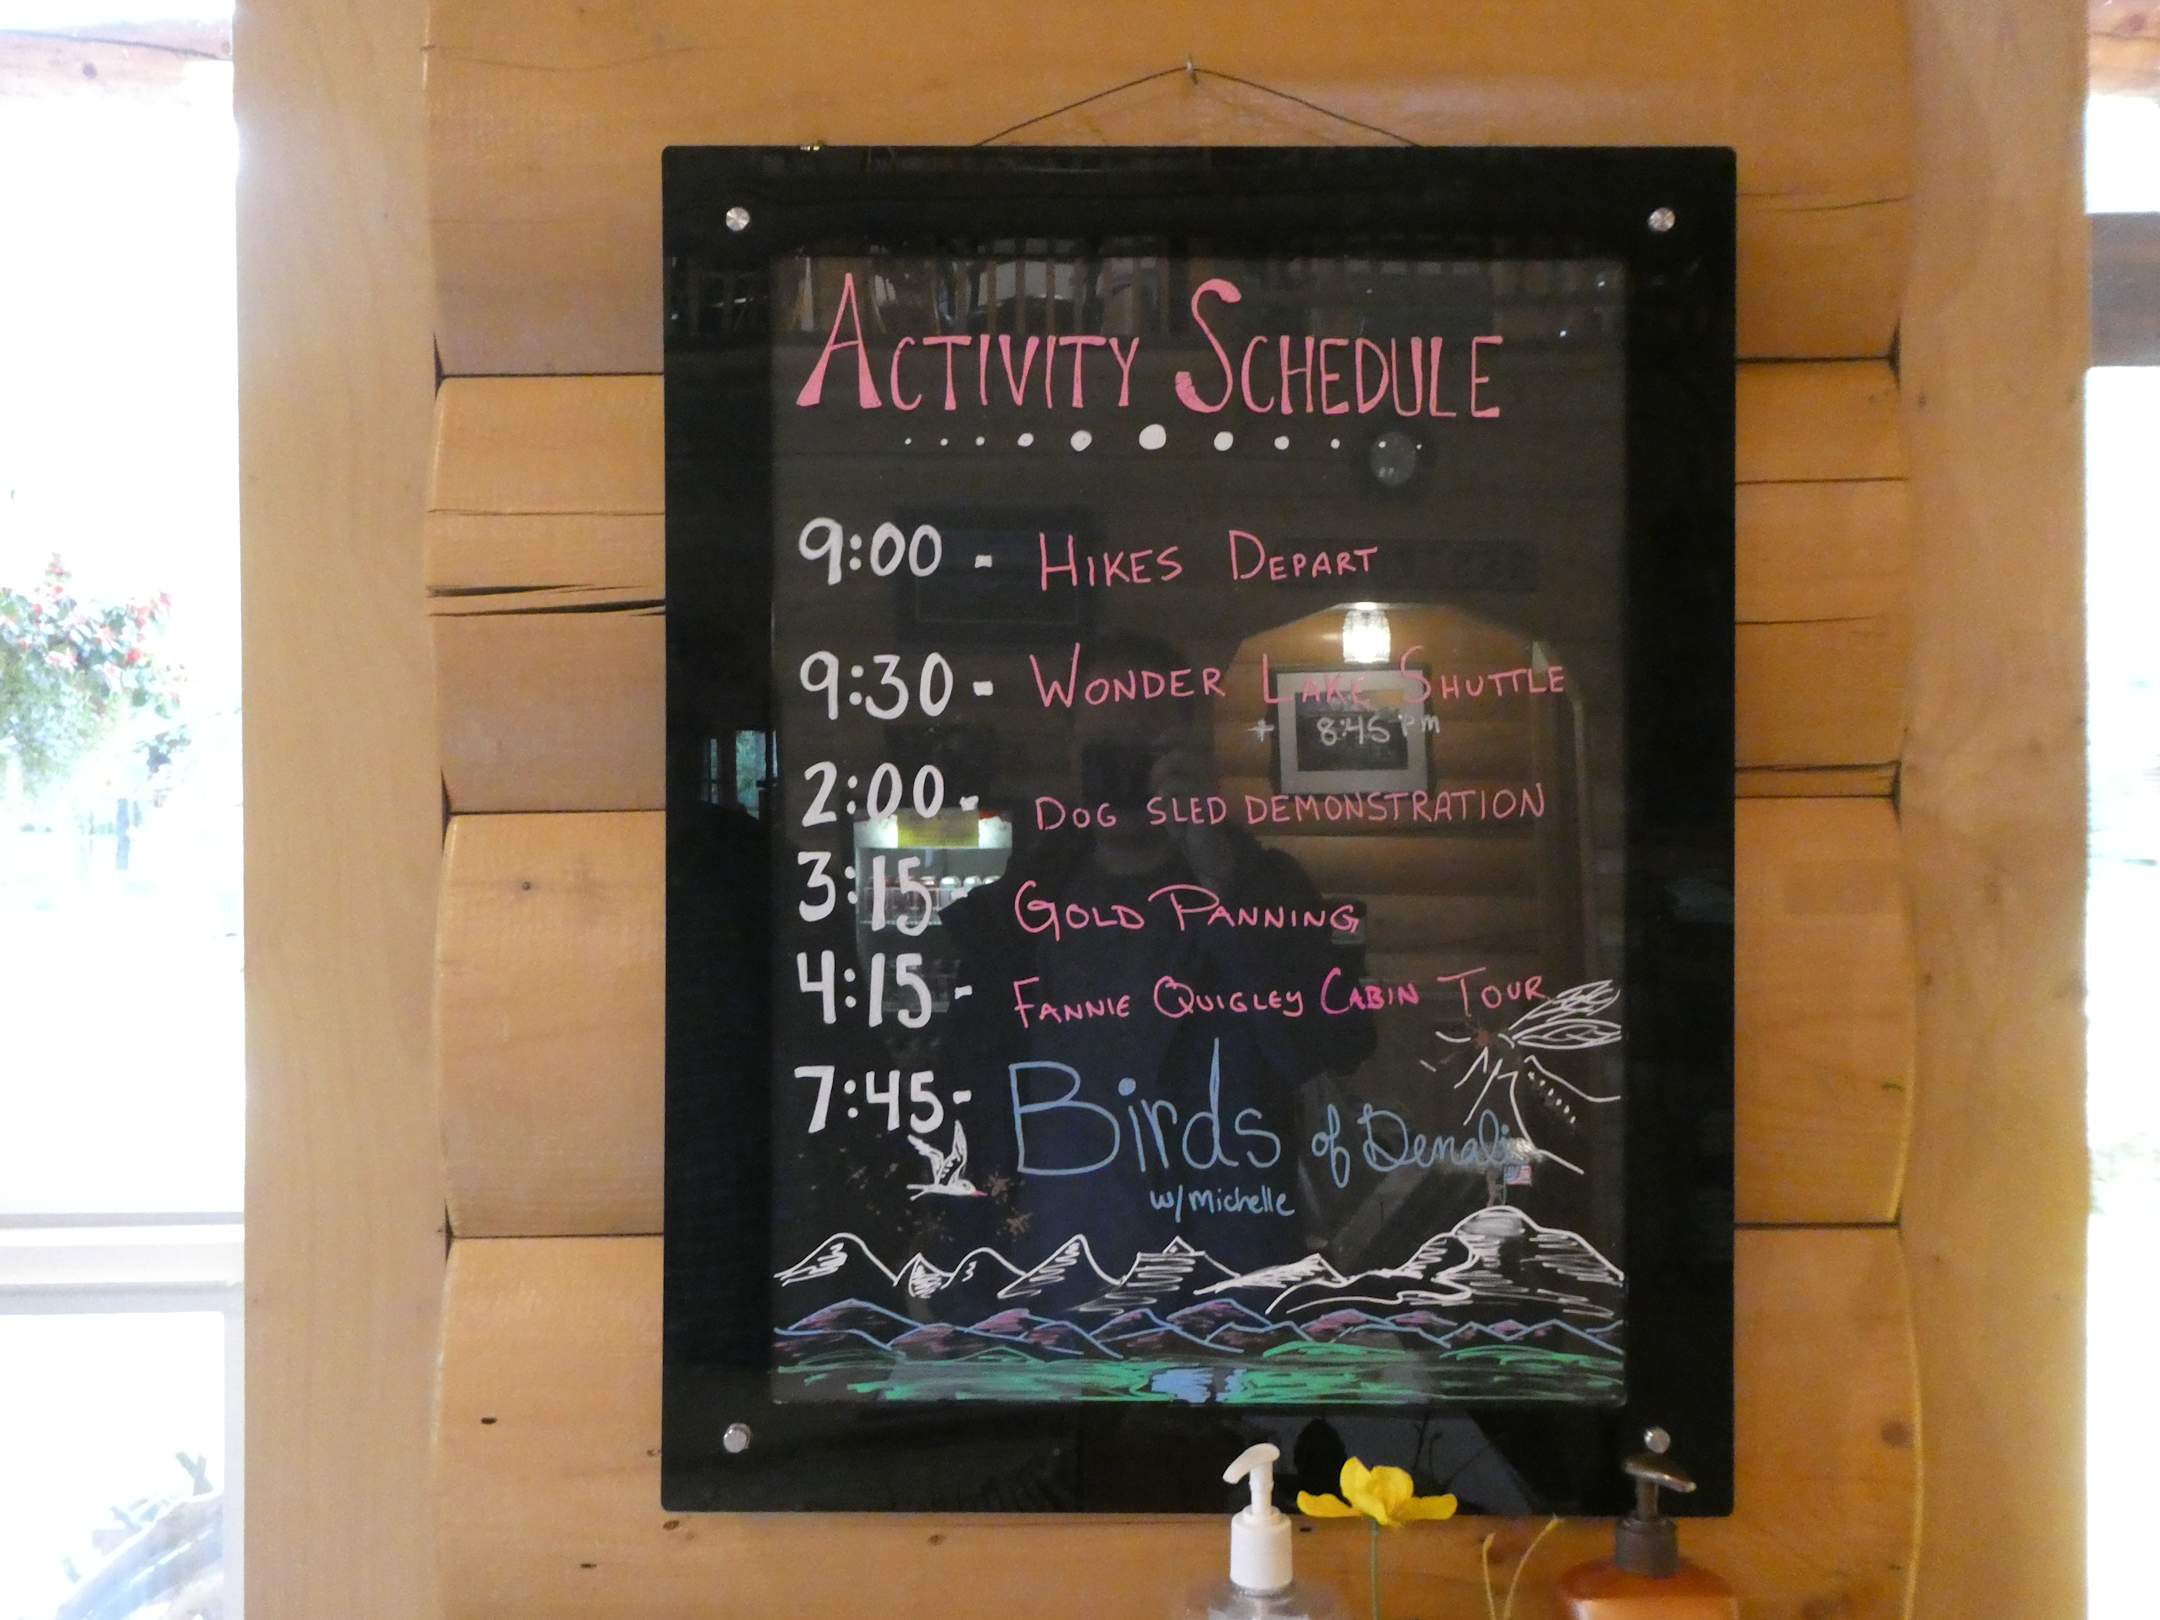 ACTIVITY SCHEDULE
9:00 - HIKES DEPART
9:30 - WONDER LAKE SHUTTLE
+ 8:45 PM
2:00 - DOG SLED DEMONSTRATION
3:15 - GOLD PANNING
4:15 - FANNIE QUIGLEY CABIN TOUR
7:45 - Birds of Denali
w/ michelle